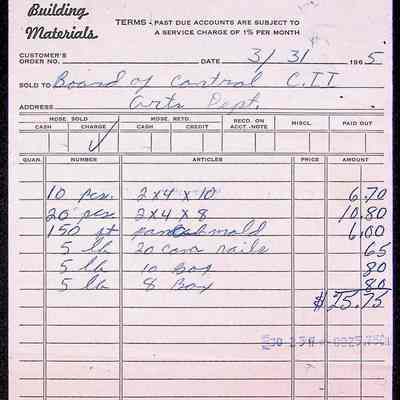 Building
Materials
TERMS - PAST DUE ACCOUNTS ARE SUBJECT TO
A SERVICE CHARGE OF 1% PER MONTH
CUSTOMER'S
ORDER NO. DATE 3/31 1965
SOLD TO Board of Control C.I.I
ADDRESS Arts Dept.
MDSE. SOLD MDSE. RETD. RECD. ON MISCL. PAID OUT
CASH CHARGE CASH CREDIT ACCT.-NOTE
✓
QUAN. NUMBER ARTICLES PRICE AMOUNT
10 pcs. 2x4x10 6.70
20 pcs 2x4x8 10.80
150 mold 6.00
5 lb 20 nails 65
5 lb 10 Box 80
5 lb 8 Box 80
$25.75